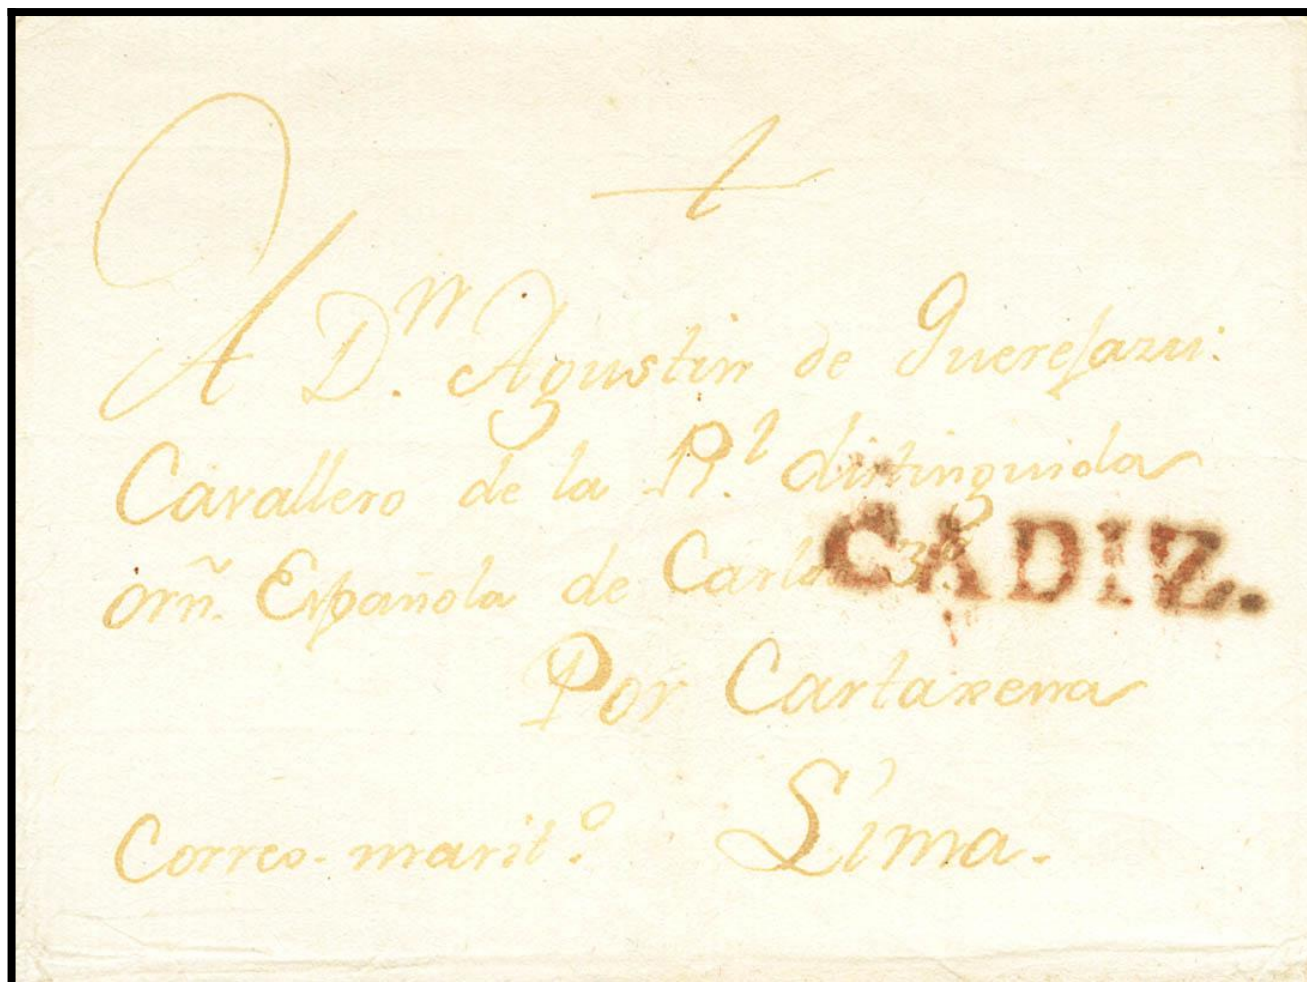 A Dn. Agustin de Querejazu.
Cavallero de la Rl. distinguida
orñ. Española de Carlos 3º.
CADIZ.
Por Cartaxena
Correo-marit.º Lima.